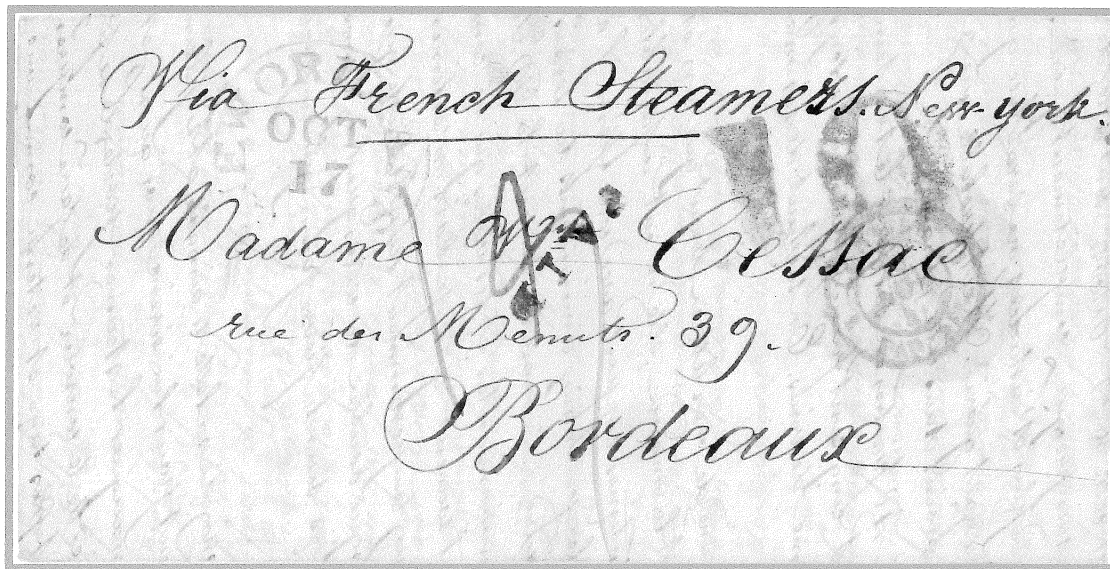 Via French Steamers. New-york.
OCT
17
10
Madame Vve Cessac
rue des Menuts. 39.
Bordeaux